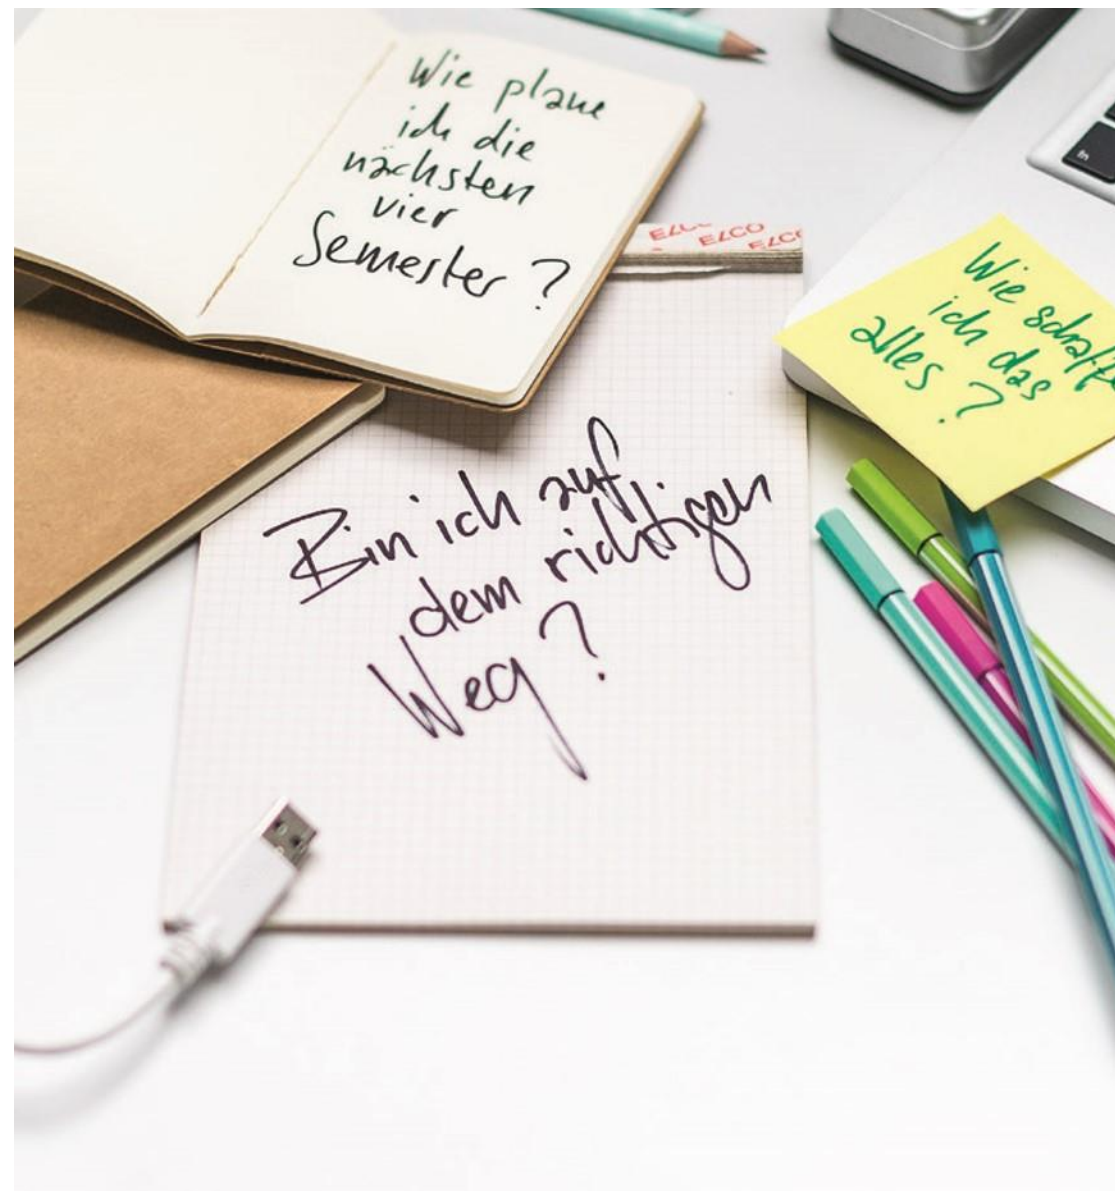 Wie plane
ich die
nächsten
vier
Semester ?
ELCO
ELCO
ELCO
Wie schaffe
ich das
alles ?
Bin ich auf
dem richtigen
Weg ?
fn